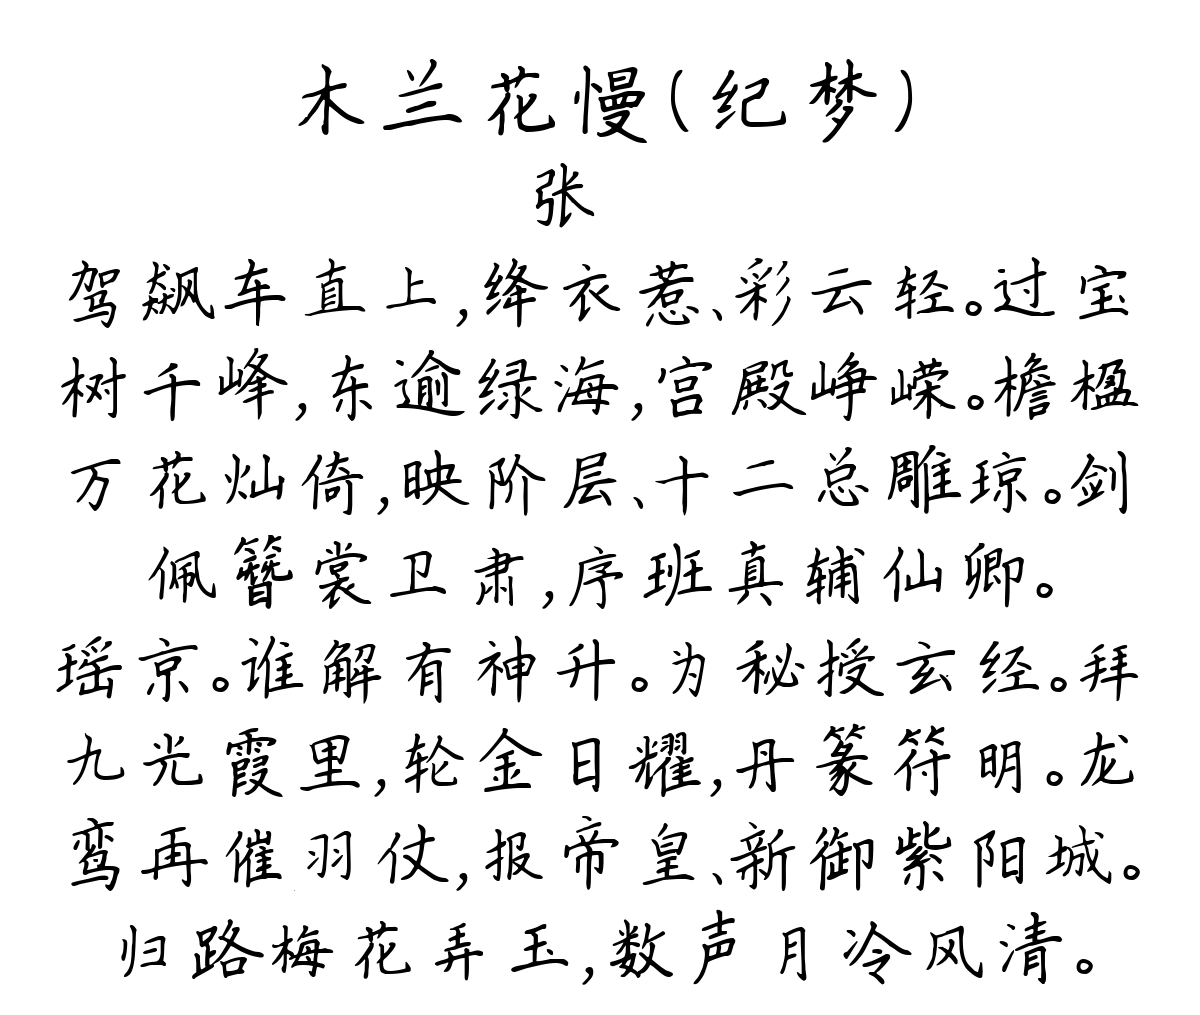 木兰花慢(纪梦)
张
驾飙车直上,绛衣惹、彩云轻。过宝
树千峰,东逾绿海,宫殿峥嵘。檐楹
万花灿倚,映阶层、十二总雕琼。剑
佩簪裳卫肃,序班真辅仙卿。
瑶京。谁解有神升。为秘授玄经。拜
九光霞里,轮金日耀,丹篆符明。龙
鸾再催羽仗,报帝皇、新御紫阳城。
归路梅花弄玉,数声月冷风清。